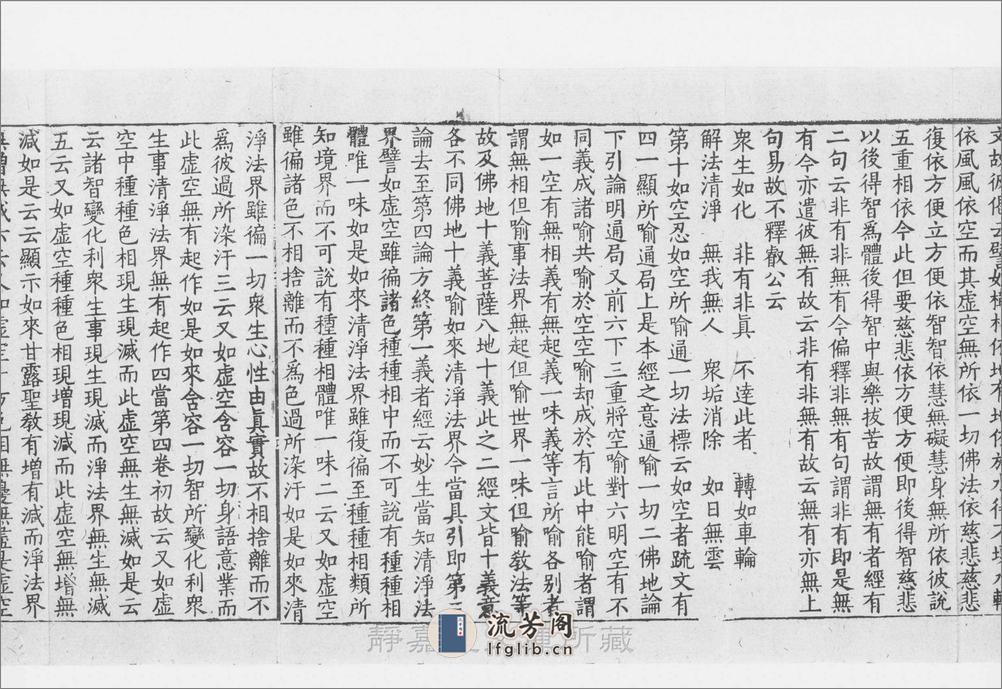 文故彼偈云譬如樹林依地有地依於水得不壞水輪
依風風依空而其虛空無所依一切佛法依慈悲慈悲
復依方便立方便依智智依慧無礙慧身無所依彼說
五重相依今此但要慈悲依方便方便即後得智慈悲
以後得智爲體後得智中與樂拔苦故謂無有者經有
二句云非有非無有今偏釋非無有句謂非有即是無
有今亦遣彼無有故云非有非無有故云無有亦無上
句易故不釋叡公云
衆生如化　非有非眞　不達此者　轉如車輪
解法清淨　無我無人　衆垢消除　如日無雲
第十如空忍如空所喻通一切法標云如空者疏文有
四一顯所喻通局上是本經之意通喻一切二佛地論
下引論明通局又前六下三重將空喻對六明空有不
同義成諸喻共喻於空空喻却成於有此中能喻者謂
如一空有無相義有無起義一味義等言所喻各別者
謂無相但喻事法界無起但喻世界一味但喻教法等
故及佛地十義菩薩八地十義此之二經文皆十義意
各不同佛地十義喻如來清淨法界今當具引即第三
論去至第四論方終第一義者經云妙生當知清淨法
界譬如虛空雖徧諸色種種相中而不可說有種種相
體唯一味如是如來清淨法界雖復徧至種種相類所
知境界而不可說有種種相體唯一味二云又如虛空
雖徧諸色不相捨離而不爲色過所染汙如是如來清
淨法界雖徧一切衆生心性由眞實故不相捨離而不
爲彼過所染汙三云又如虛空含容一切身語意業而
此虛空無有起作如是如來含容一切智所變化利衆
生事清淨法界無有起作四當第四卷初故云又如虛
空中種種色相現生現滅而此虛空無生無滅如是云
云諸智變化利衆生事現生現滅而淨法界無生無滅
五云又如虛空種種色相現增現減而此虛空無增無
減如是云云顯示如來甘露聖教有增有減而淨法界
無增無減六云又如虛空十方色相無邊無盡是虛空
靜嘉 所藏
流芳阁
lfglib.cn